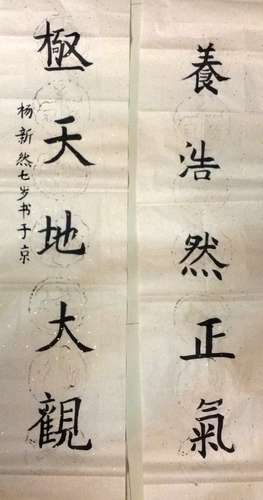 養浩然正氣
極天地大觀
杨新然七岁书于京